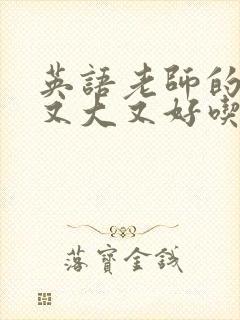 英語老師的
又大又好喫
落寶金錢